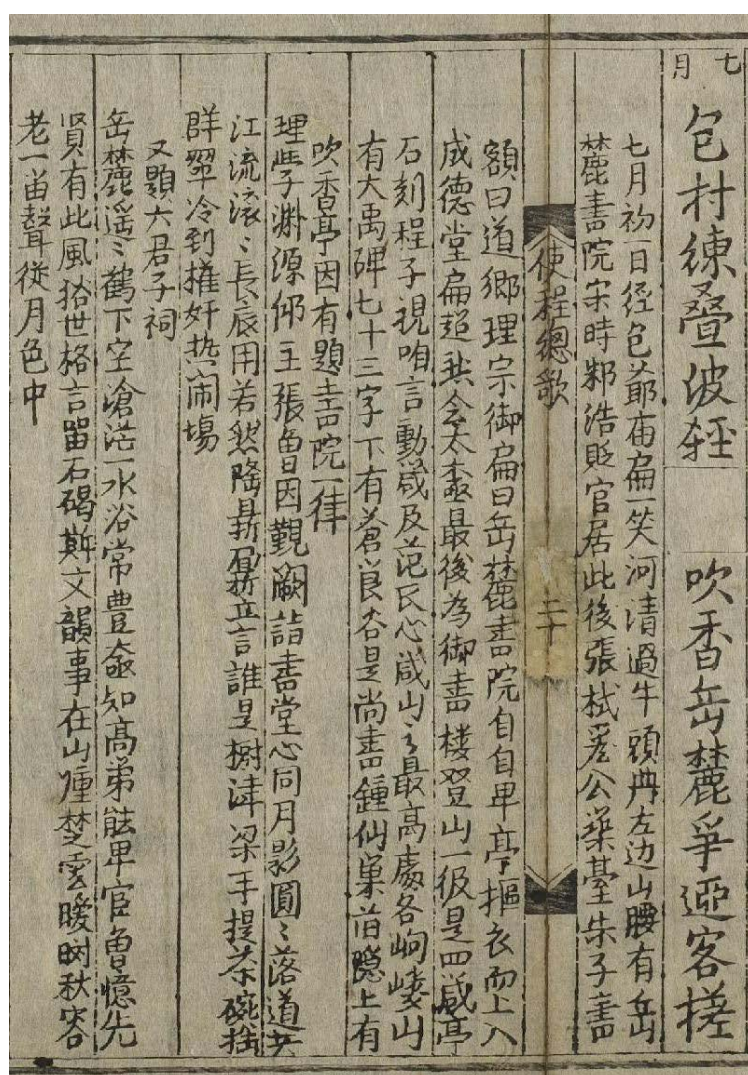 七月
包村練疊波輕 吹香岳麓爭迎客搓
七月初一日徑包爺庙扁一笑河清過牛頭冊左边山腰有岳
麓書院宋時鄒浩貶官居此後張栻爲公築臺朱子書
使程總歌 二十
額曰道鄉理宗御扁曰岳麓書院自自卑亭摳衣而上入
成德堂扁超然会太極最後為御書樓登山一级是四箴亭
石刻程子視咱言動箴及范氏心箴山之最高處各岣嶁山
有大禹碑七十三字下有蒼筤谷是尚書鍾仙巢昔隐上有
吹香亭因有題書院一律
理學渊源仰王張曾因覲闕詣書堂心同月影圓〻落道共
江流滚〻長辰用若然隆鼎鼐立言誰是樹津梁手提茶碗拪
群翠冷到權奸热闹場
又題六君子祠
岳麓遥〻鶴下空滄茫一水浴常豊知高弟能卑官曾憶先
賢有此風拾世格言留石碣斯文韻事在山僮楚雲曖树秋容
老一笛聲從月色中